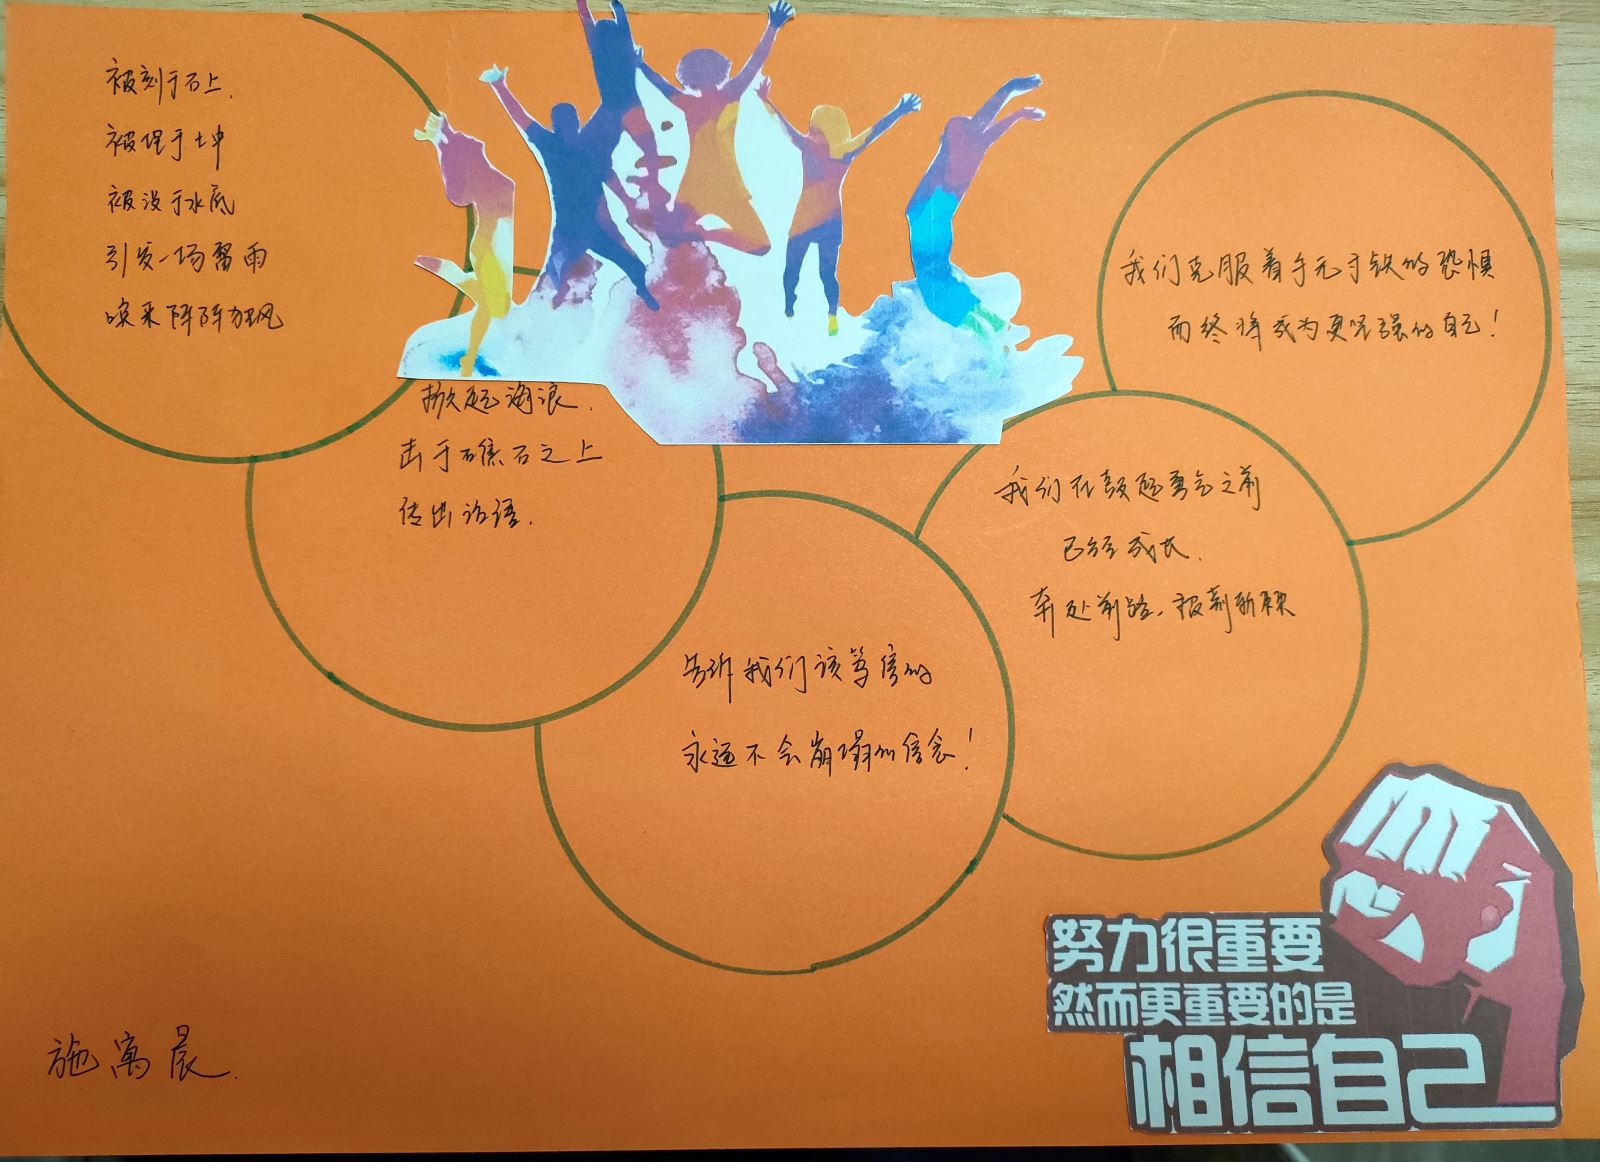 被刻于石上.
被埋于土中
被没于水底
引发一场雷雨
唤来阵阵狂风
掀起海浪.
击于礁石之上
传出话语.
告诉我们该笃信的
永远不会崩塌的信念!
我们在鼓起勇气之前
已经成长.
奔赴前路,报刻所映
我们克服着手无寸铁的恐惧
而终将成为更坚强的自己!
努力很重要
然而更重要的是
相信自己
施寓晨.